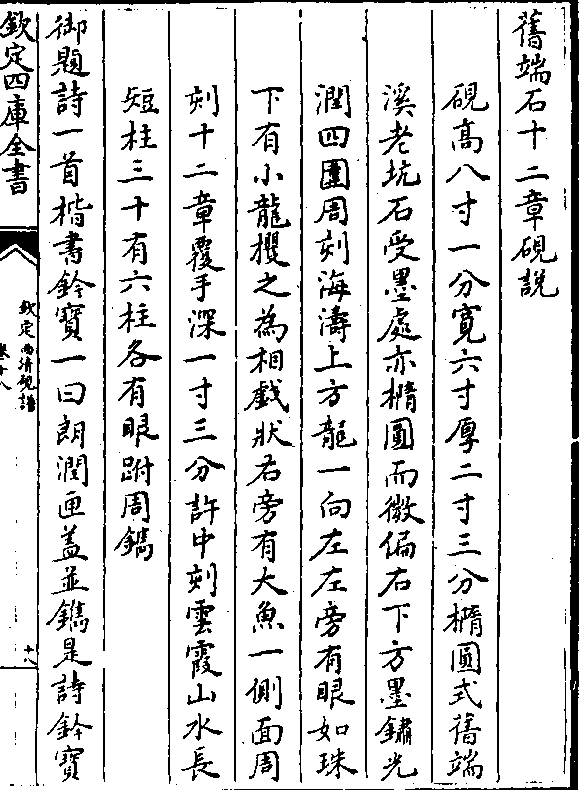 舊端石十二章硯説
硯髙八寸一分寛六寸厚二寸三分橢圓式舊端
溪老坑石受墨處亦橢圓而微偏右下方墨鏽光
潤四圍周刻海濤上方龍一向左左旁有眼如珠
下有小龍攫之為相戲狀右旁有大魚一側面周
刻十二章覆手深一寸三分許中刻雲霞山水長
短柱三十有六柱各有眼跗周鐫
御題詩一首楷書鈐寳一曰朗潤匣盖並鐫是詩鈐寳
欽定四庫全書
欽定西清硯譜
卷十八
十八